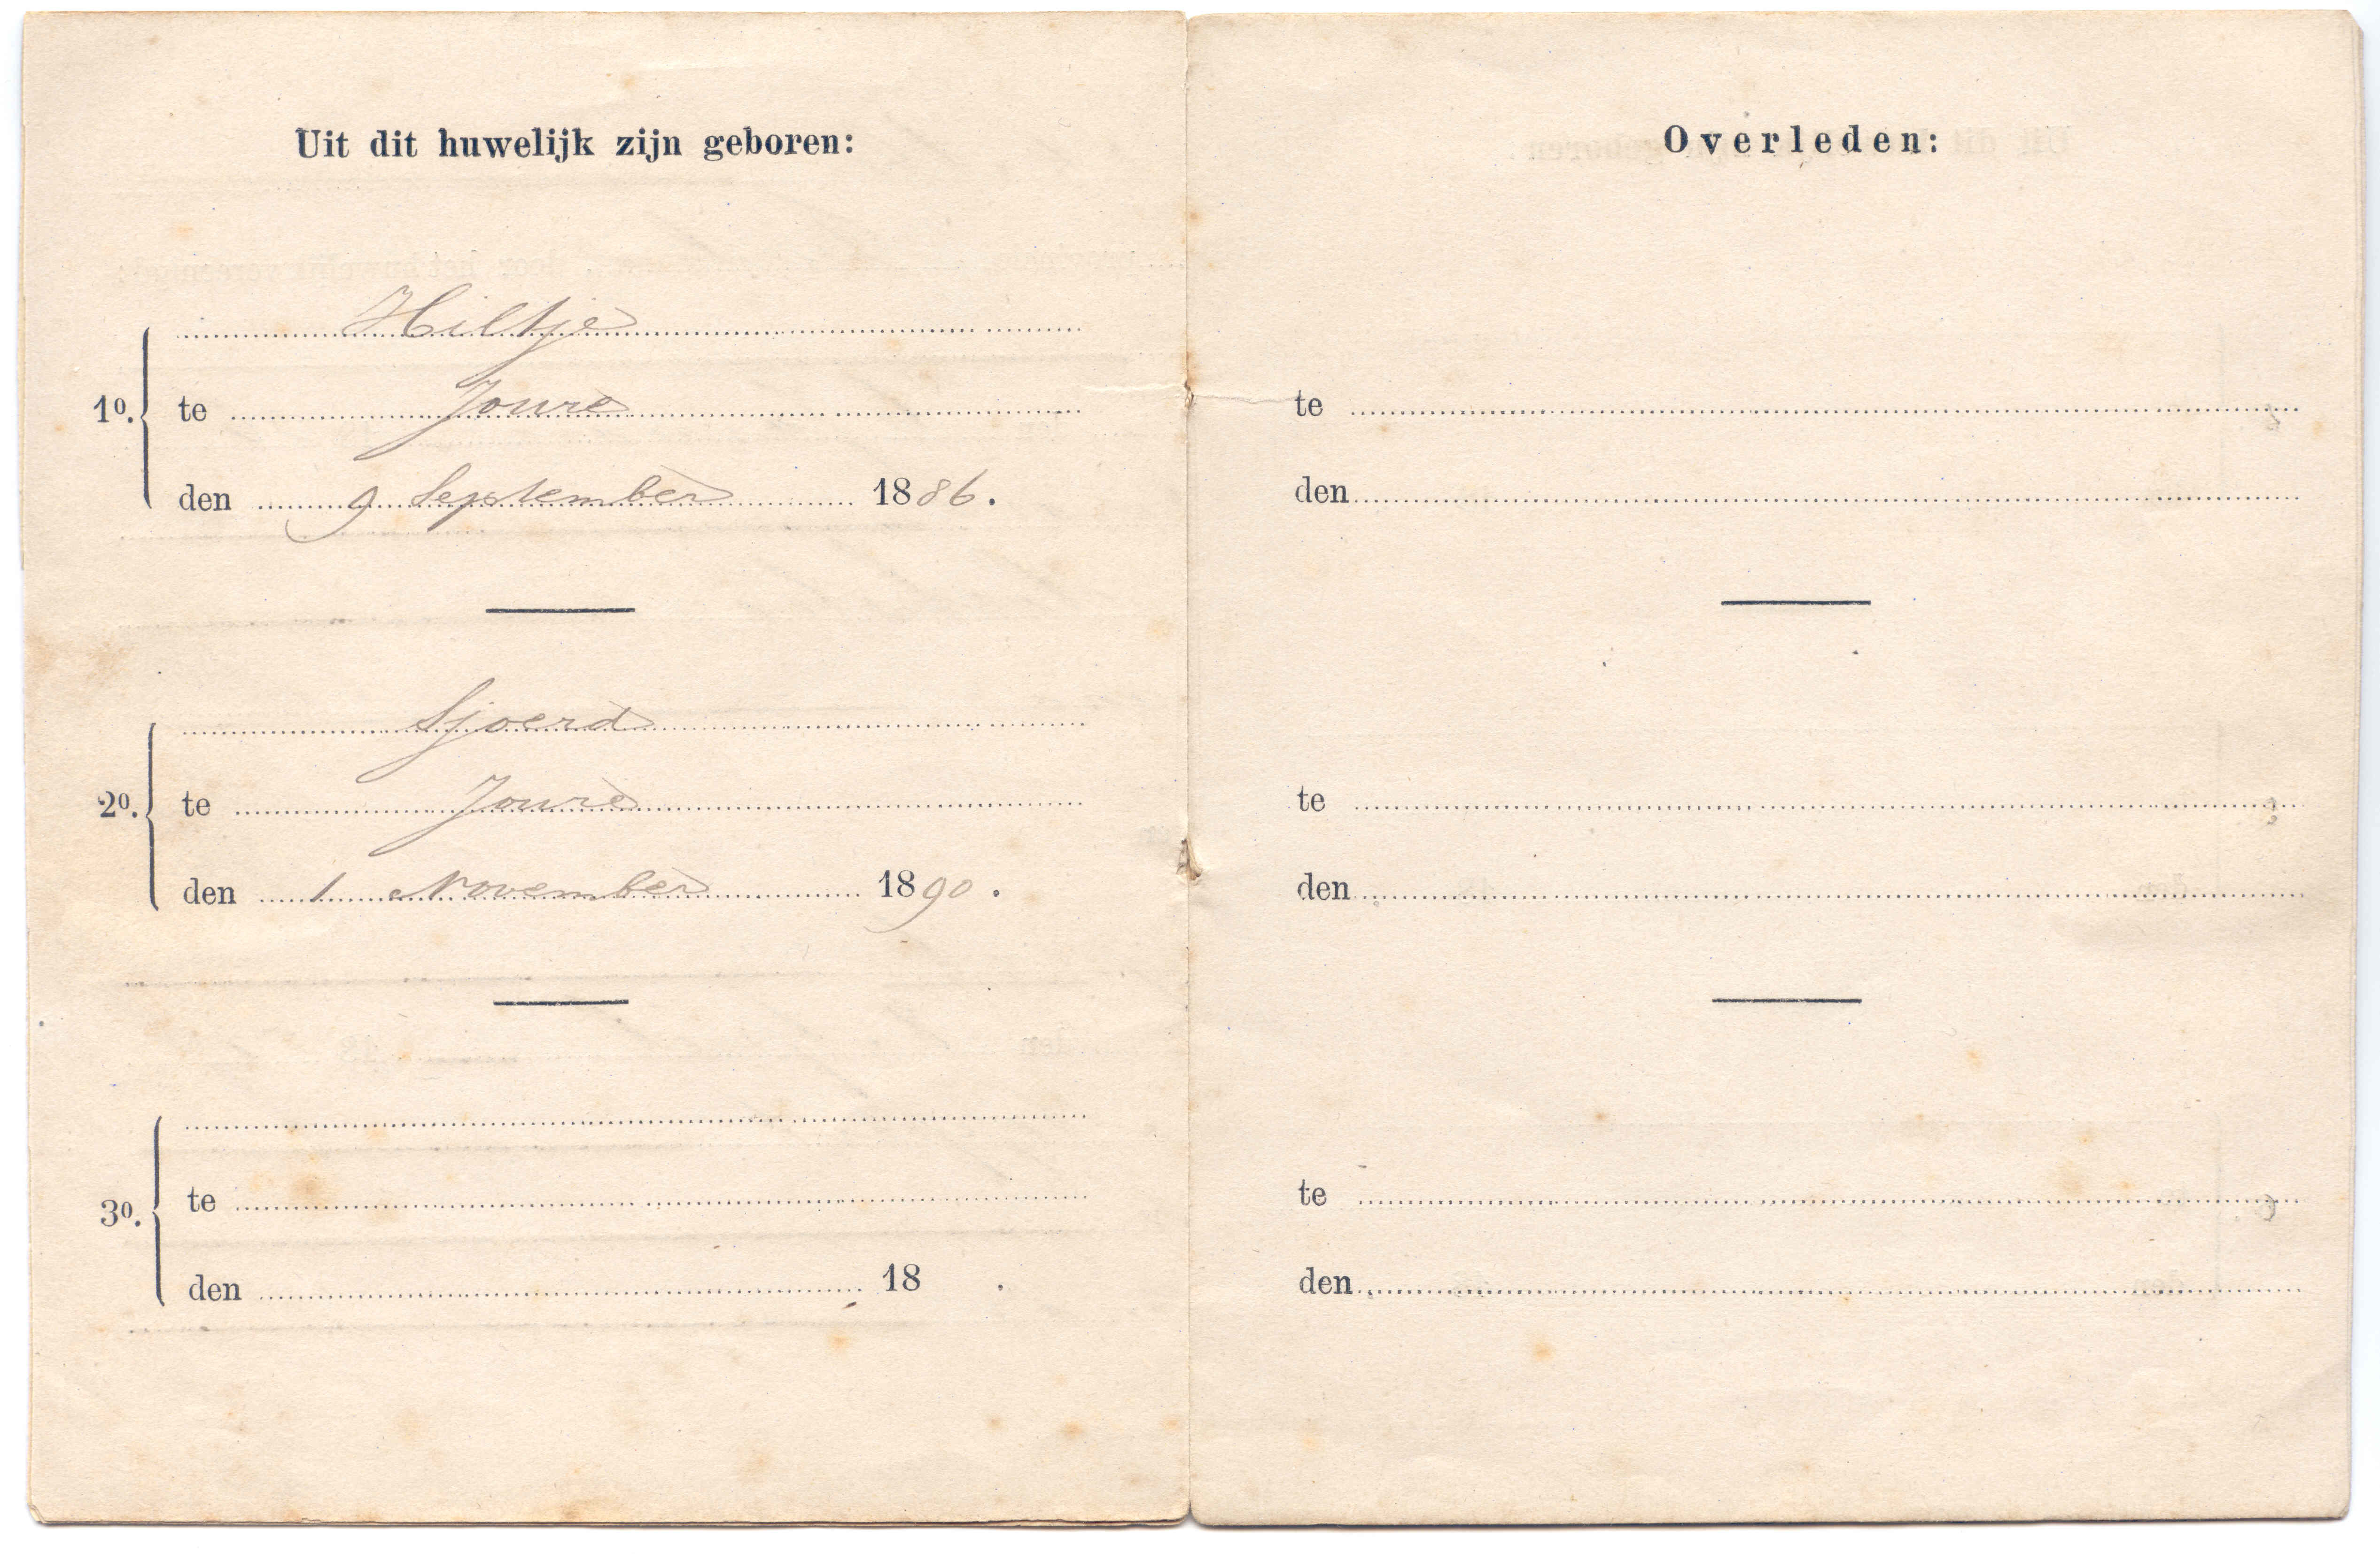 Uit dit huwelijk zijn geboren:
Hiltje
1o. te Joure
den 9 September 1886.
Sjoerd
2o. te Joure
den 1 November 1890.
3o. te
den 18 .
Overleden:
te
den
te
den
te
den